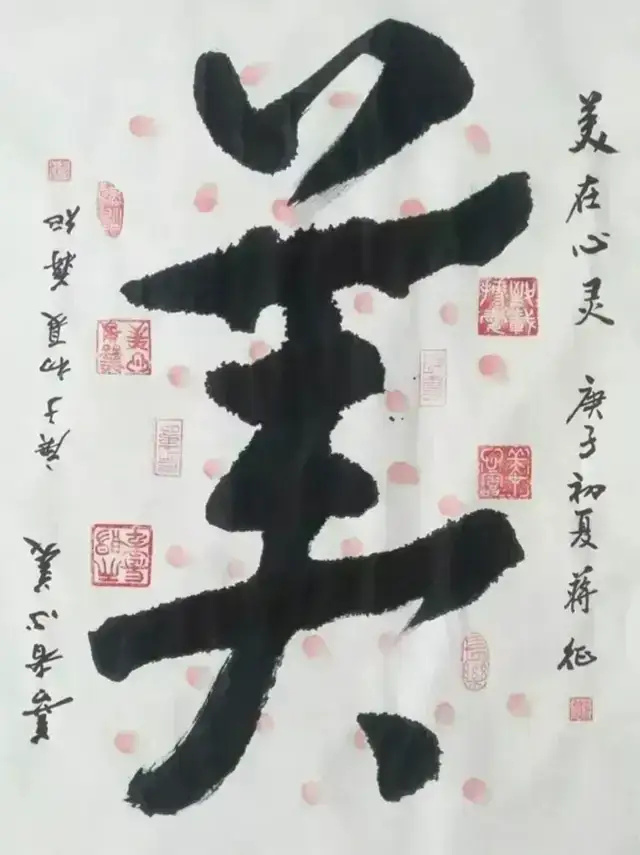 美
美在心灵 庚子初夏 蒋征
善者心美 庚子初夏 蒋征